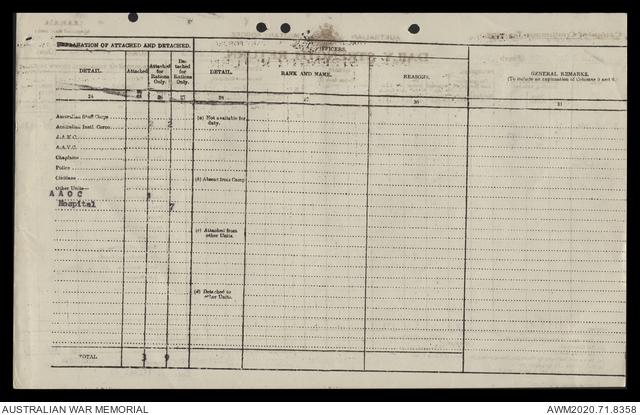 EXPLANATION OF ATTACHED AND DETACHED.
OFFICERS.
DETAIL.
Attached
Attached for Rations Only.
De-tached for Rations Only.
DETAIL.
RANK AND NAME.
REASONS.
GENERAL REMARKS.
(To include an explanation of Columns 5 and 6.)
24
25
26
27
28
29
30
31
Australian Staff Corps
(a) Not available for duty.
Australian Instl. Corps
2 2
A.A.M.C.
A.A.V.C.
Chaplains
Police
Civilians
(b) Absent from Camp
Other Units—
A A O C
Hospital
7
(c) Attached from other Units.
(d) Detached to other Units.
TOTAL
3 9
AUSTRALIAN WAR MEMORIAL
AWM2020.71.8358